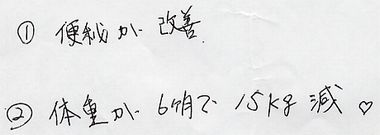 ① 便秘が 改善.
② 体重が 6ヶ月で 15kg 減 ♡